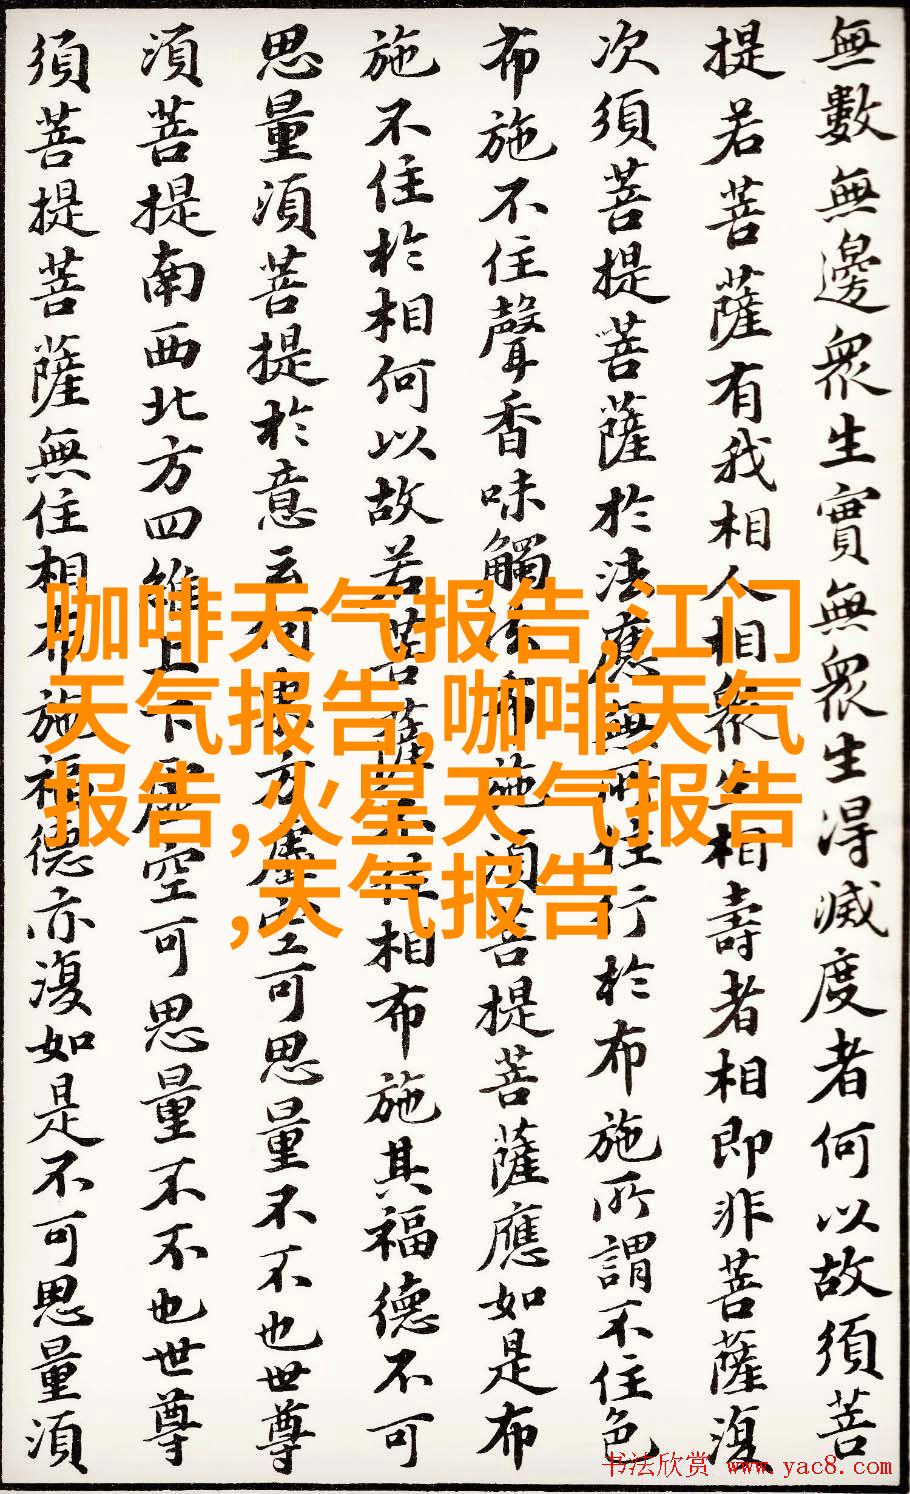 無數無邊衆生實無衆生得滅度者何以故須菩
提若菩薩有我相人相衆生相壽者相即非菩薩復
次須菩提菩薩於法應無所住行於布施所謂不住色
布施不住聲香味觸法布施須菩提菩薩應如是布
施不住於相何以故若菩薩不住相布施其福德不可
思量須菩提於意云何東方虛空可思量不不也世尊
須菩提南西北方四維上下虛空可思量不不也世尊
須菩提菩薩無住相布施福德亦復如是不可思量須
咖啡天气报告,江门
天气报告,咖啡天气
报告,火星天气报告
,天气报告
书法欣赏 www.yac8.com